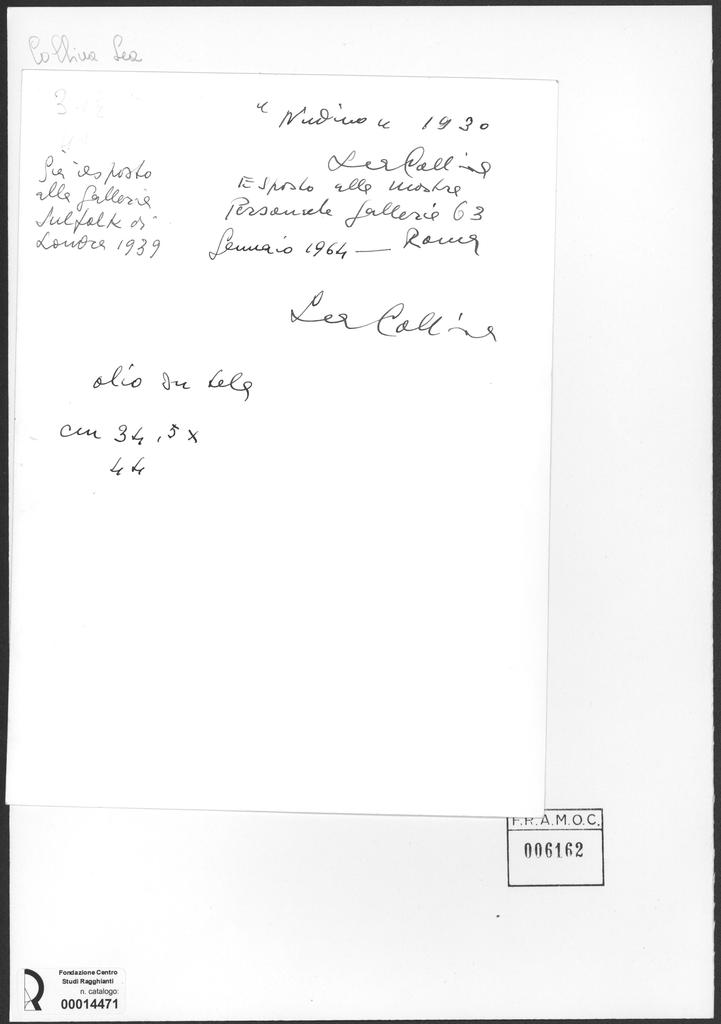 Collina Lea
"Nudino" 1930
Lea Collina
Esposto alla mostra
Personale Galleria 63
Gennaio 1964 — Roma
Già esposto
alla Galleria
Sulfolk di
Londra 1939
Lea Collina
olio su tela
cm 34,5 x
44
F.R.A.M.O.C.
006162
Fondazione Centro
Studi Ragghianti
n. catalogo:
00014471